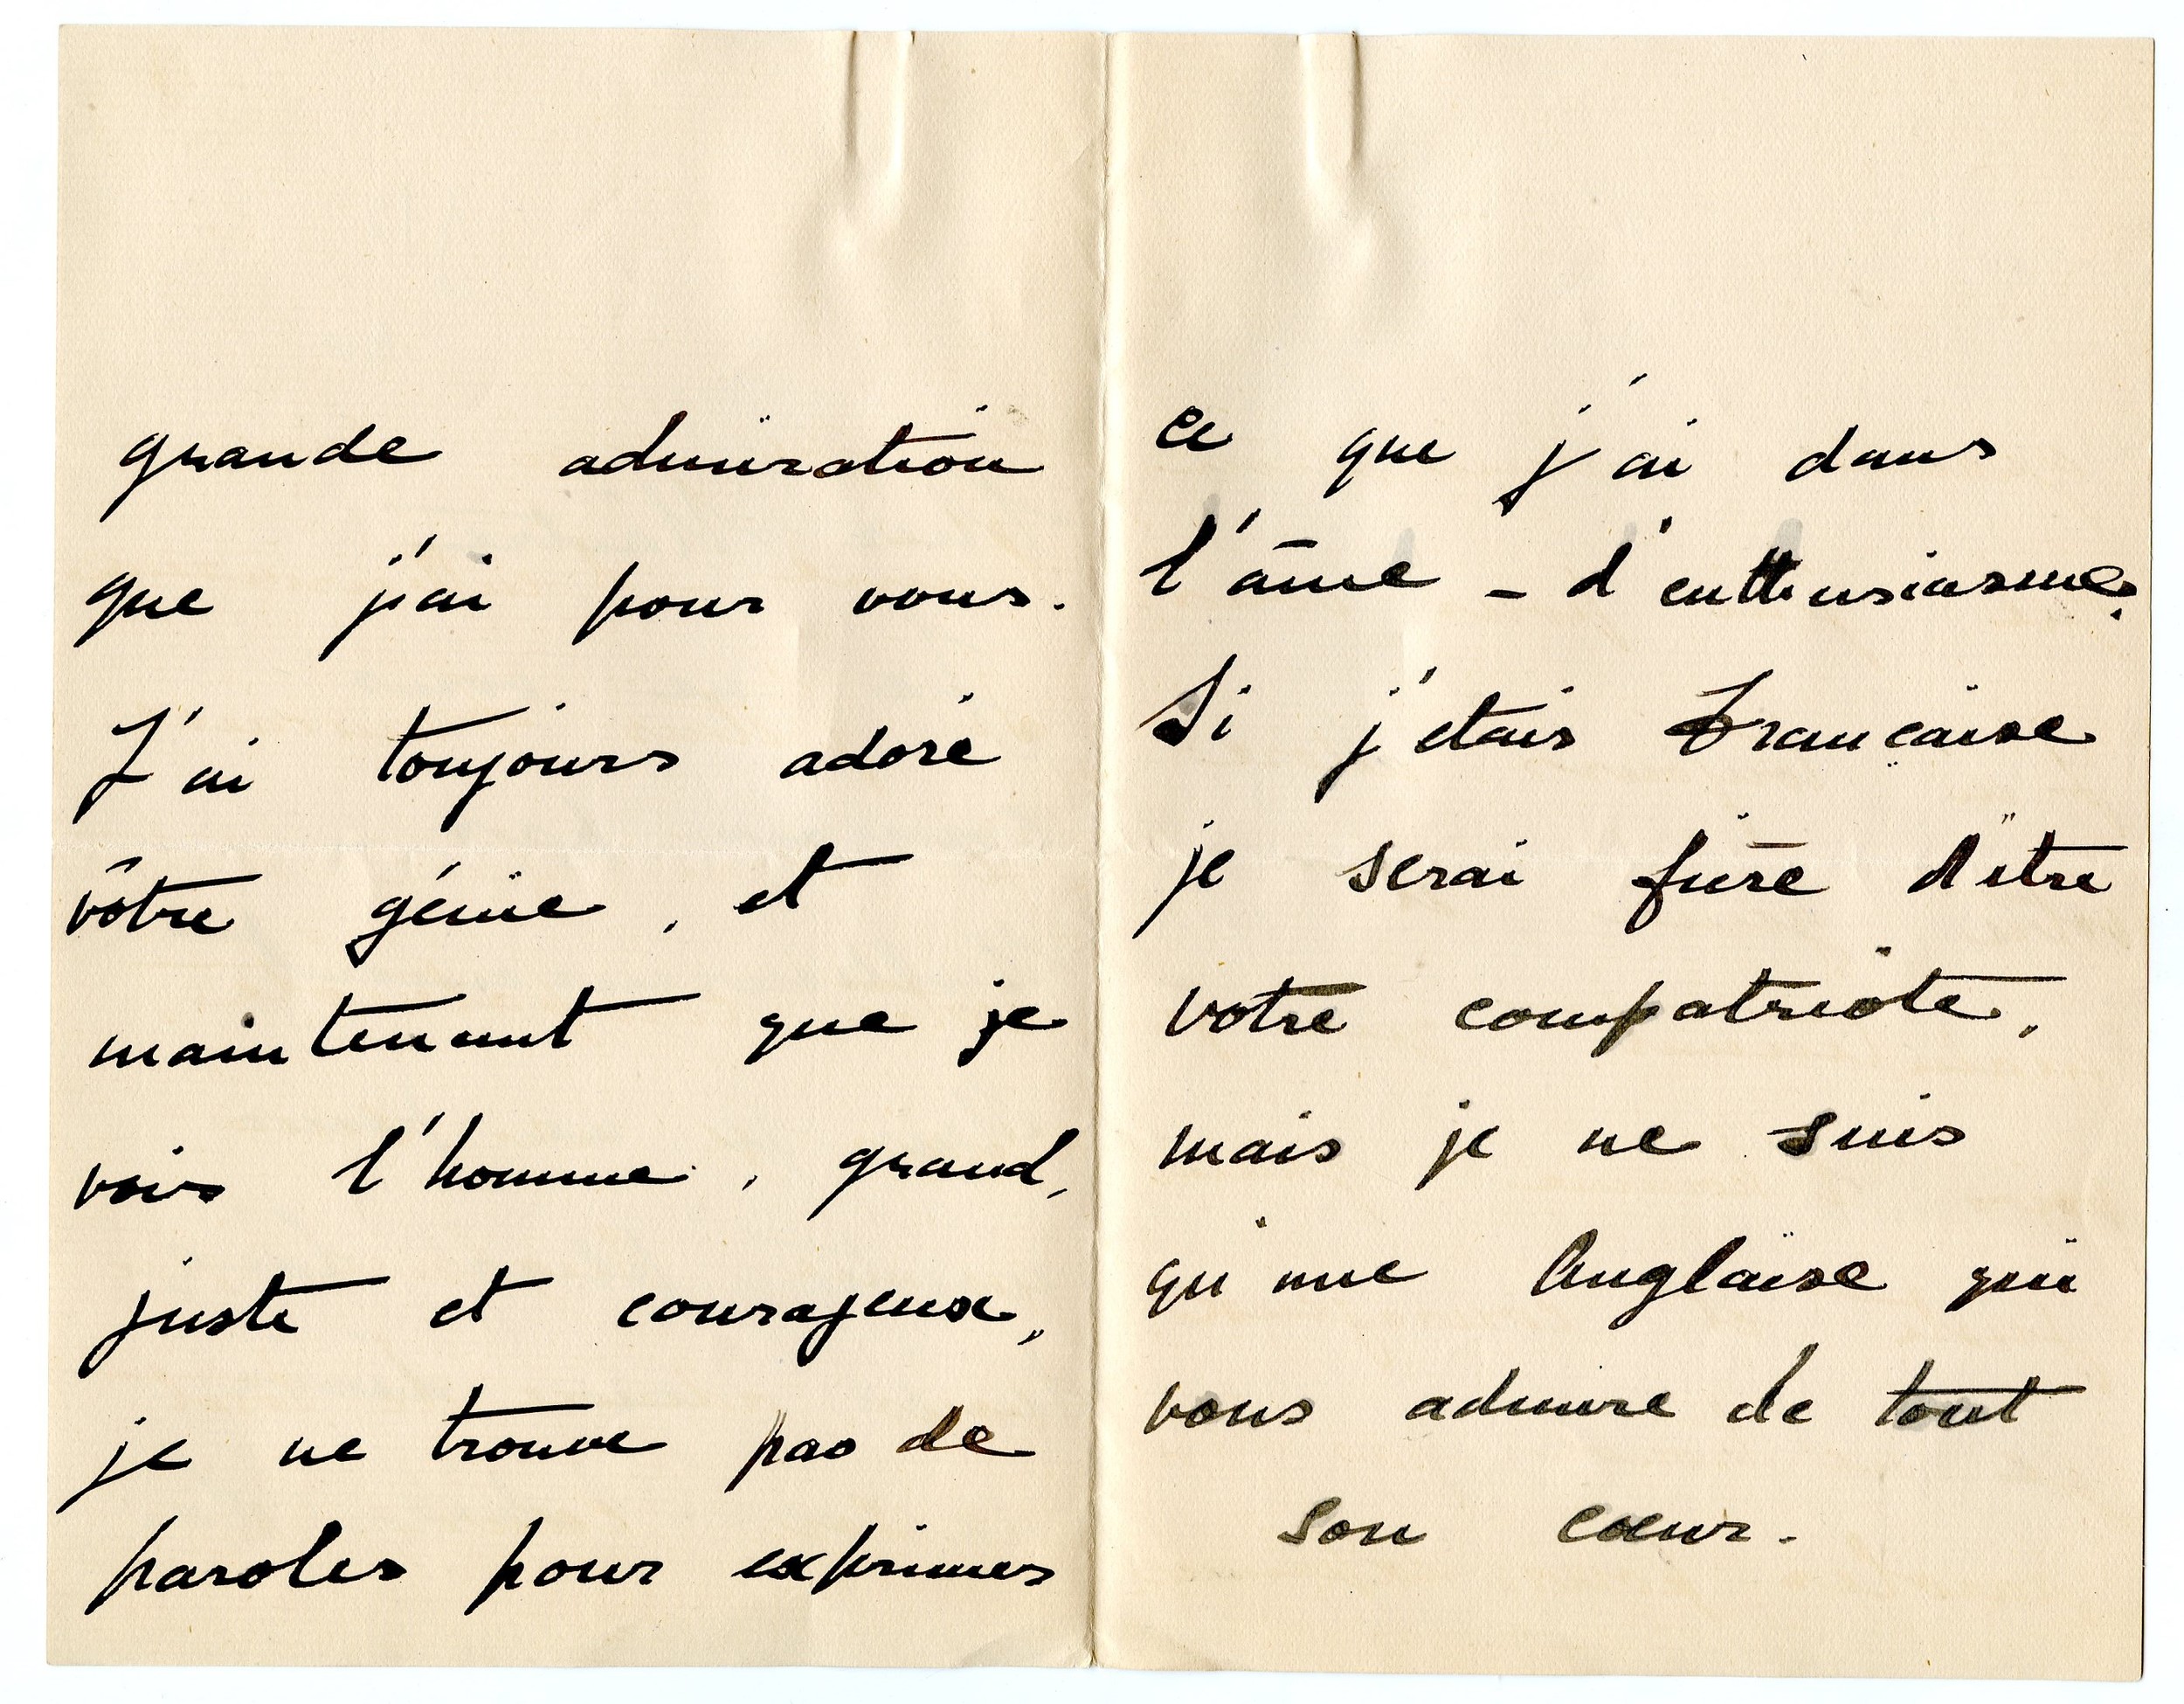 grande admiration
que j'ai pour vous.
J'ai toujours adoré
vôtre génie, et
maintenant que je
vois l'homme, grand,
juste et courageux,
je ne trouve pas de
paroles pour exprimer
ce que j'ai dans
l'âme - d'enthusiasme.
Si j'etais Française
je serai fière d'être
votre compatriote,
mais je ne suis
qu'une Anglaise qui
vous admire de tout
son coeur.